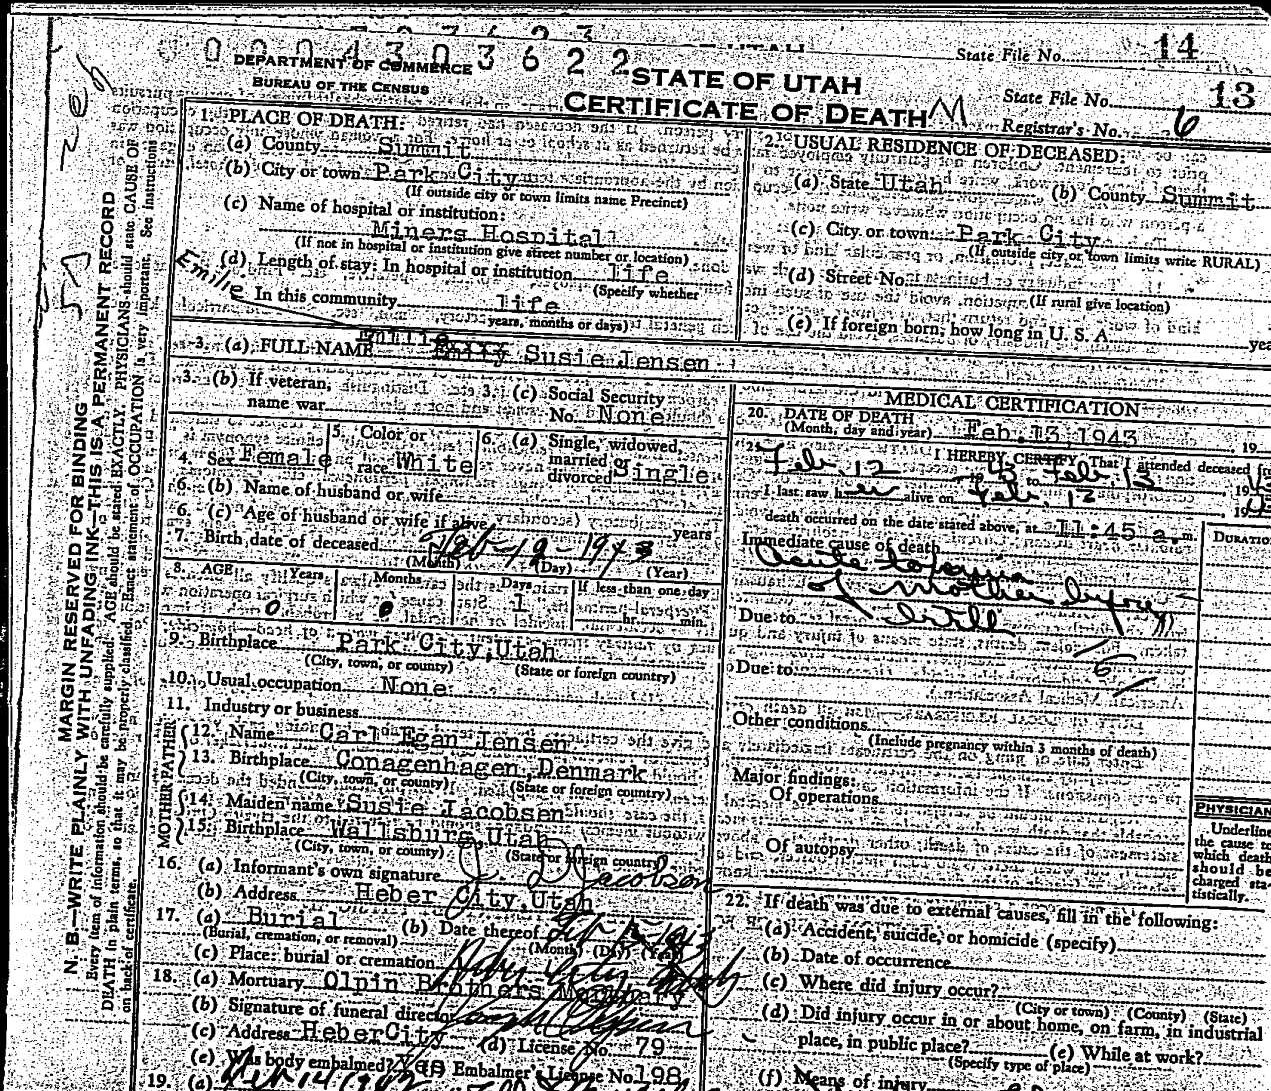 0004303622
DEPARTMENT OF COMMERCE
BUREAU OF THE CENSUS
STATE OF UTAH
CERTIFICATE OF DEATH
State File No. 14
State File No. 13
Registrar's No. 6
MARGIN RESERVED FOR BINDING
N. B—WRITE PLAINLY WITH UNFADING INK—THIS IS A PERMANENT RECORD
Every item of information should be carefully supplied. AGE should be stated EXACTLY. PHYSICIANS should state CAUSE OF
DEATH in plain terms, so that it may be properly classified. Exact statement of OCCUPATION is very important. See instructions
on back of certificate.
1. PLACE OF DEATH:
(a) County Summit
(b) City or town Park City
(If outside city or town limits name Precinct)
(c) Name of hospital or institution:
Miners Hospital
(If not in hospital or institution give street number or location)
(d) Length of stay: In hospital or institution life
(Specify whether
Emilie
In this community life
years, months or days)
2. USUAL RESIDENCE OF DECEASED:
(a) State Utah (b) County Summit
(c) City or town Park City
(If outside city or town limits write RURAL)
(d) Street No.
(If rural give location)
(e) If foreign born, how long in U. S. A. yea
3. (a) FULL NAME Emily Susie Jensen
Emilie
3. (b) If veteran, name war
3. (c) Social Security No. None
4. Sex Female
5. Color or race White
6. (a) Single, widowed, married divorced Single
6. (b) Name of husband or wife
6. (c) Age of husband or wife if alive years
7. Birth date of deceased Feb-12-1943
(Month) (Day) (Year)
8. AGE Years Months Days If less than one day
0 0 1 hr. min.
9. Birthplace Park City, Utah
(City, town, or county) (State or foreign country)
10. Usual occupation None
11. Industry or business
FATHER
12. Name Carl Egan Jensen
13. Birthplace Conagenhagen, Denmark
(City, town, or county) (State or foreign country)
MOTHER
14. Maiden name Susie Jacobsen
15. Birthplace Wallsburg, Utah
(City, town, or county) (State or foreign country)
16. (a) Informant's own signature J. D Jacobsen
(b) Address Heber City, Utah
17. (a) Burial (b) Date thereof
(Burial, cremation, or removal) (Month) (Day) (Year)
(c) Place: burial or cremation Heber City Utah
18. (a) Mortuary Olpin Brothers Mortuary
(b) Signature of funeral director
(c) Address Heber City (d) License No. 79
(e) Was body embalmed? Yes Embalmer's License No. 198
19. (a)
MEDICAL CERTIFICATION
20. DATE OF DEATH
(Month, day and year) Feb. 13, 1943 19
21. I HEREBY CERTIFY, That I attended deceased fr
Feb. 12 43 to Feb. 13, 19
I last saw her alive on Feb. 13, 19
death occurred on the date stated above, at 11:45 a. m.
DURATION
Immediate cause of death
Acute
of Mother before
birth
Due to
Due to
Other conditions
(Include pregnancy within 3 months of death)
Major findings:
Of operations
Of autopsy
PHYSICIAN
Underline
the cause to
which death
should be
charged sta-
tistically.
22. If death was due to external causes, fill in the following:
(a) Accident, suicide, or homicide (specify)
(b) Date of occurrence
(c) Where did injury occur?
(City or town) (County) (State)
(d) Did injury occur in or about home, on farm, in industrial
place, in public place? (e) While at work?
(Specify type of place)
(f) Means of injury